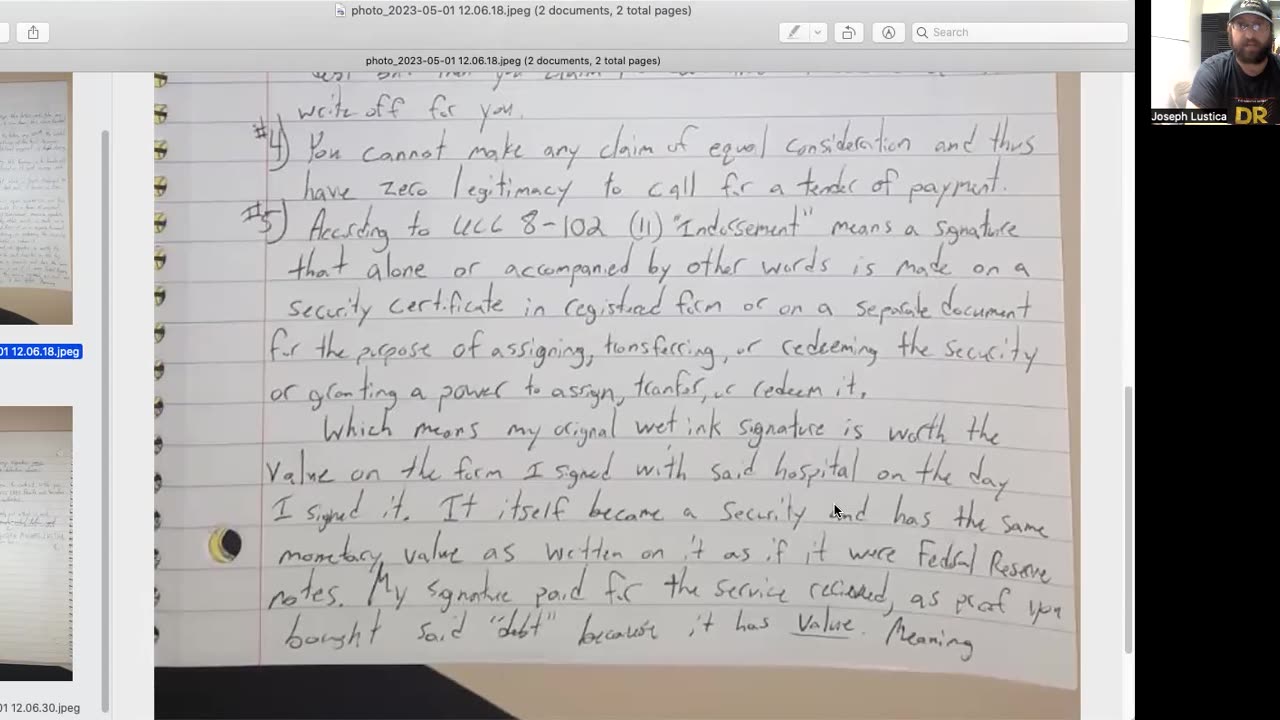 photo_2023-05-01 12.06.18.jpeg (2 documents, 2 total pages)
Search
photo_2023-05-01 12.06.18.jpeg (2 documents, 2 total pages)
Joseph Lustica
DR
you claim
write off for you.
#4) You cannot make any claim of equal consideration and thus
have zero legitimacy to call for a tender of payment.
#5) According to UCC 8-102 (11) "Indorsement" means a signature
that alone or accompanied by other words is made on a
security certificate in registered form or on a separate document
for the purpose of assigning, transferring, or redeeming the security
or granting a power to assign, tranfer, or redeem it.
Which means my orignal wet ink signature is worth the
value on the form I signed with said hospital on the day
I signed it. It itself became a security and has the same
monetary value as written on it as if it were Federal Reserve
notes. My signature paid for the service recieved, as proof you
bought said "debt" because it has value. Meaning
01 12.06.18.jpeg
01 12.06.30.jpeg